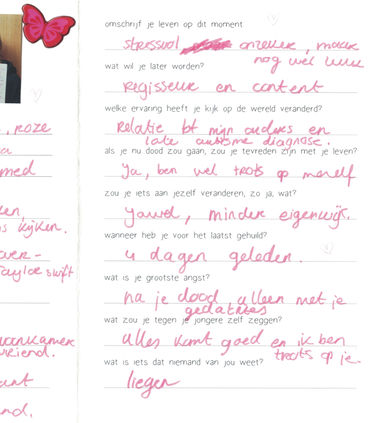 omschrijf je leven op dit moment
stressvol onzeker, maar
nog wel leuk
wat wil je later worden?
regisseur en content
welke ervaring heeft je kijk op de wereld veranderd?
relatie tot mijn ouders en
late autisme diagnose.
als je nu dood zou gaan, zou je tevreden zijn met je leven?
ja, ben wel trots op mezelf
zou je iets aan jezelf veranderen, zo ja, wat?
jawel, minder eigenwijs.
wanneer heb je voor het laatst gehuild?
4 dagen geleden.
wat is je grootste angst?
na je dood, alleen met je
gedachtes
wat zou je tegen je jongere zelf zeggen?
alles komt goed en ik ben
trots op je.
wat is iets dat niemand van jou weet?
liegen
, roze
a
med
en,
s kijken.
over -
Taylor Swift
vriend.
ant
nd.